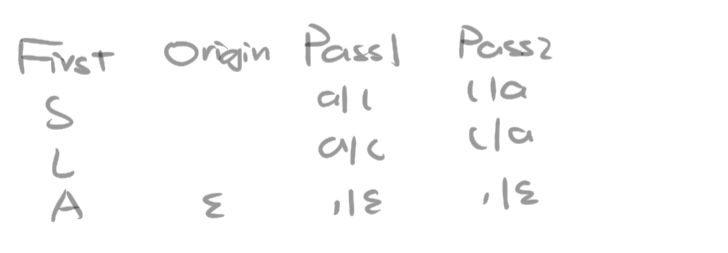 First Origin Pass1 Pass2
S a|( (|a
L a|( (|a
A ε ,|ε ,|ε